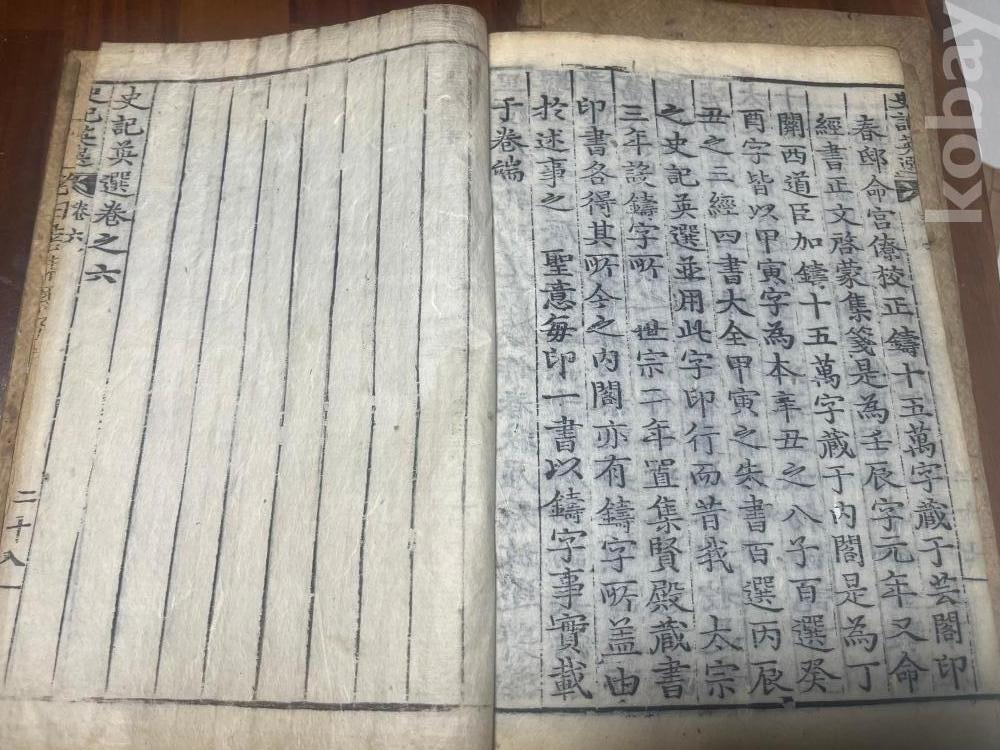 史記英選
春邸命宮僚校正鑄十五萬字藏于芸閣印
經書正文啓蒙集箋是為壬辰字元年又命
關西道臣加鑄十五萬字藏于內閣是為丁
酉字皆以甲寅字為本辛丑之八子百選癸
丑之三經四書大全甲寅之朱書百選丙辰
之史記英選並用此字印行而昔我 太宗
三年設鑄字所 世宗二年置集賢殿藏書
印書各得其所今之內閣亦有鑄字所盖由
於述事之 聖意每印一書以鑄字事實載
于卷端
史記英選卷之六
史記英選 卷六 二十八
kobay